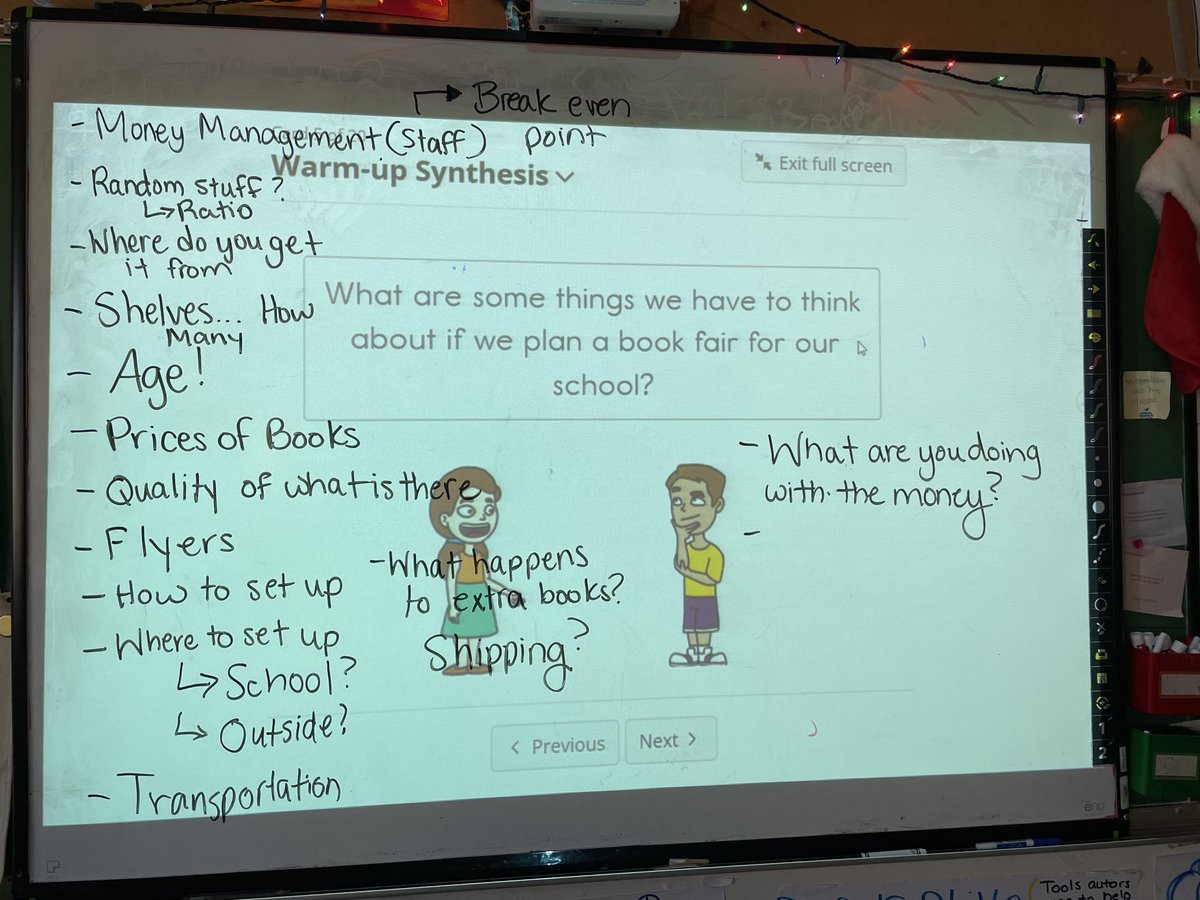 Break even
point
- Money Management (staff)
Warm-up Synthesis
Exit full screen
- Random stuff?
↳ Ratio
- Where do you get
it from
- Shelves... How
Many
- Age!
What are some things we have to think
about if we plan a book fair for our
school?
- Prices of Books
- Quality of what is there
- Flyers
- How to set up
- Where to set up
↳ School?
↳ Outside?
- Transportation
- What happens
to extra books?
Shipping?
- What are you doing
with the money?
-
< Previous
Next >
1
2
eno
Tools autors
to help